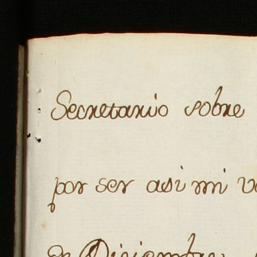 Secretario sobre
por ser asi mi
de Diciembre